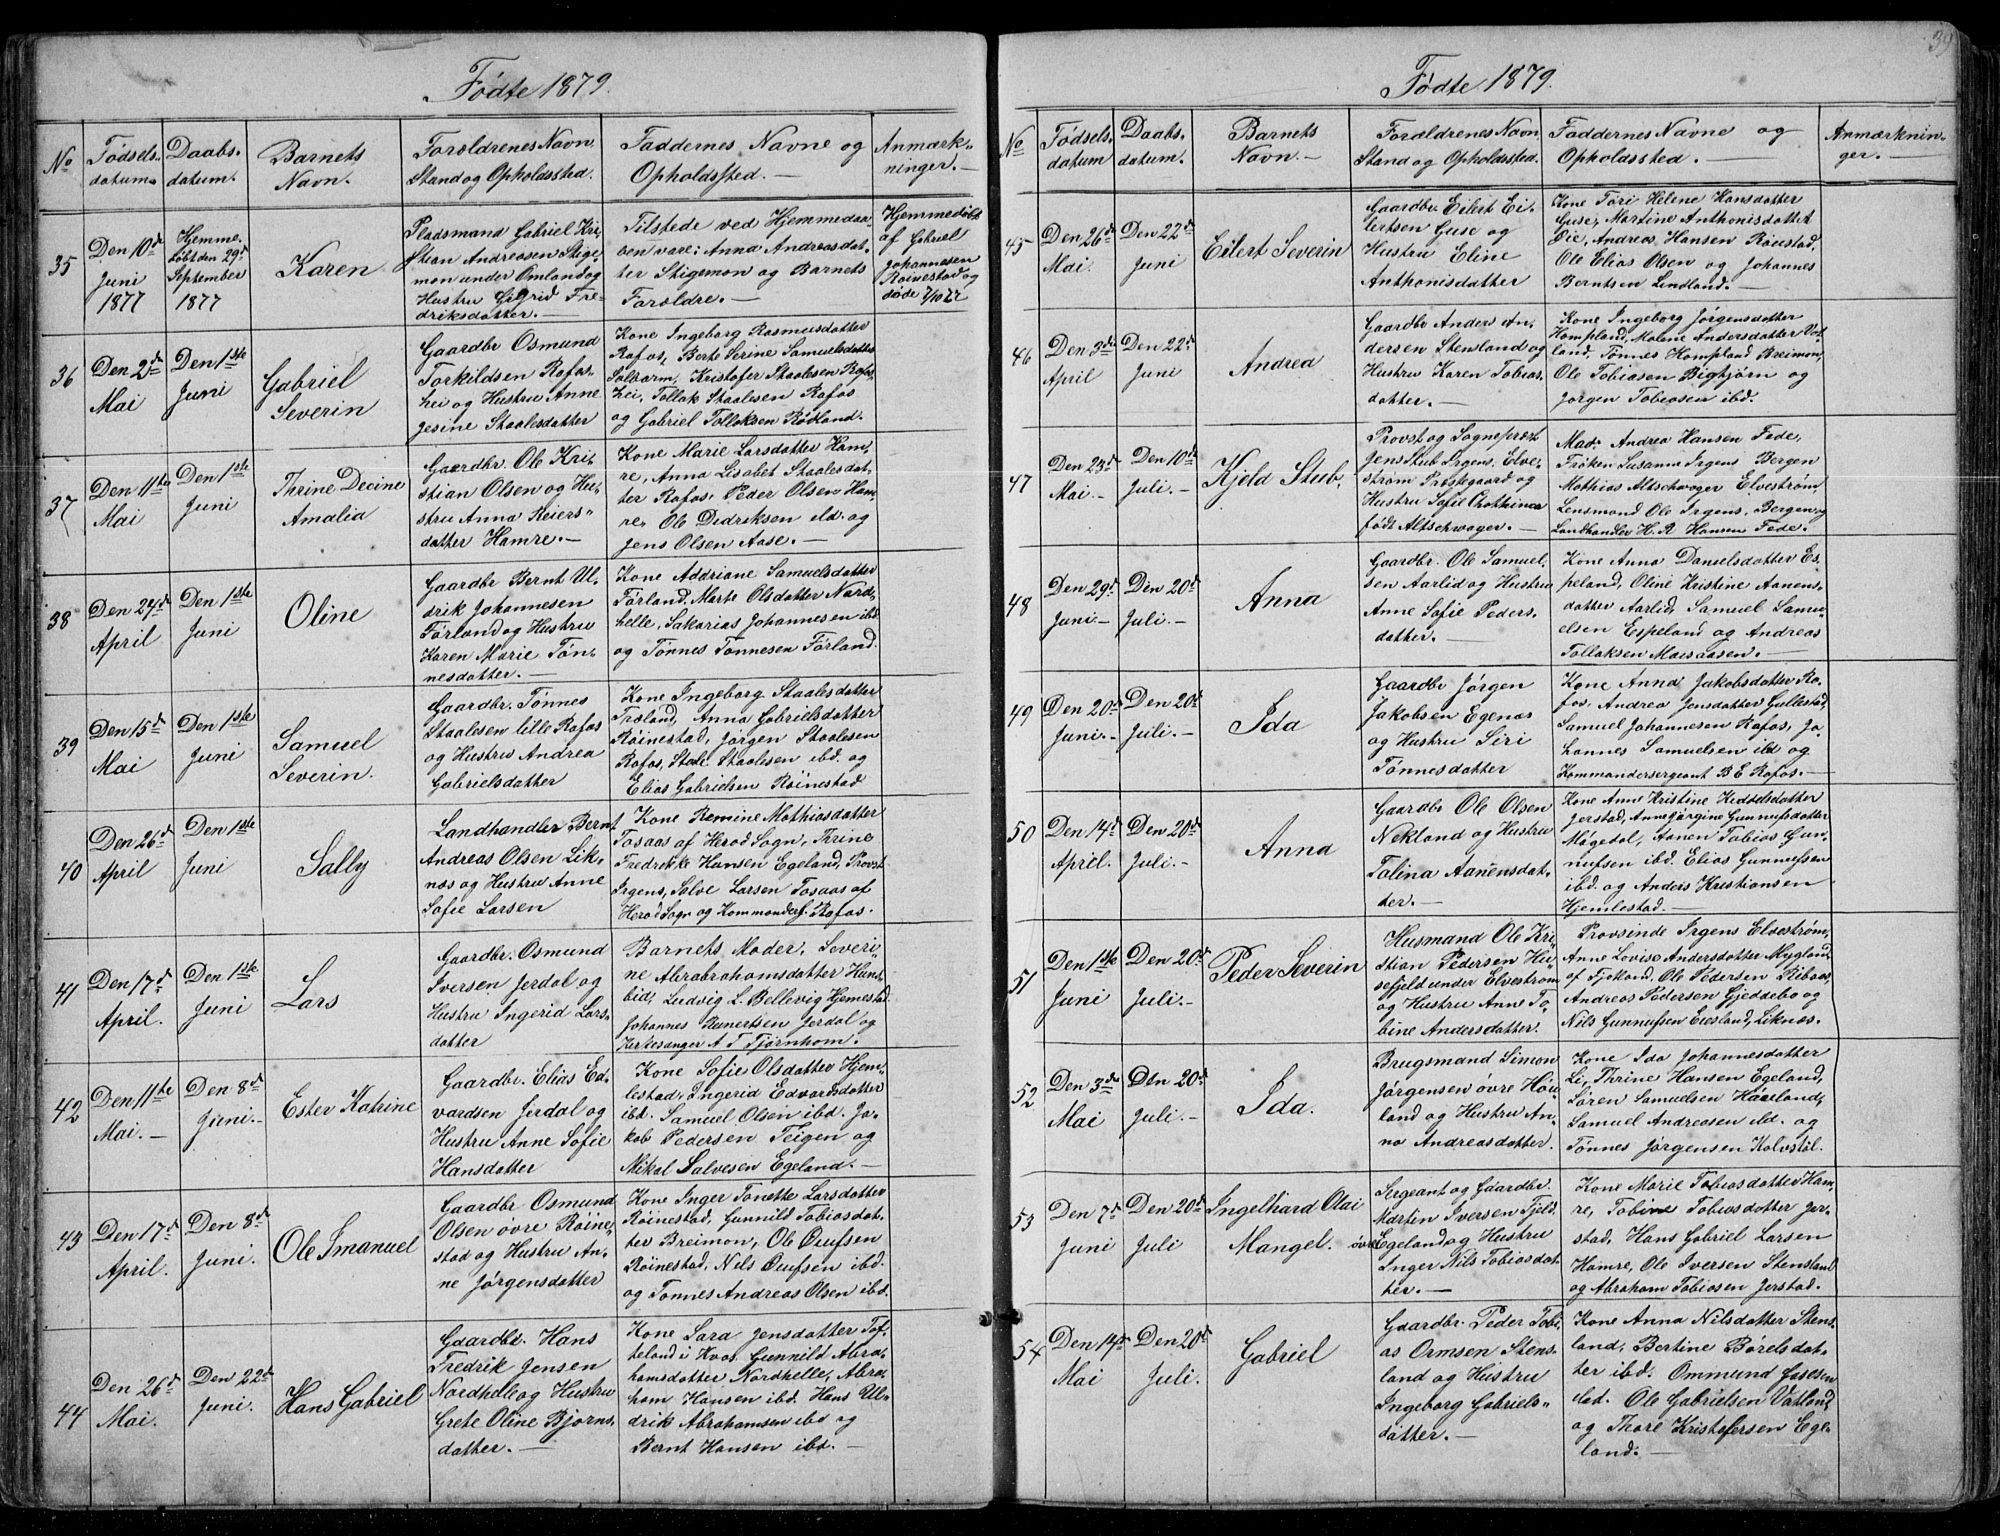 39
Fødte 1879.
No
Fødsels-
datum
Daabs-
datum.
Barnets
Navn.
Forældrenes Navn
Stand og Opholdssted.
Faddernes Navne og
Opholdssted. —
Anmærk-
ninger. —
35
Den 10de
Juni
1877
Hjemme-
døbt den 29de
September
1877
Karen
Pladsmand Gabriel Kri-
stian Andreasen Stige-
mon under Omland og
Hustru Sigrid Fre-
driksdatter. —
Tilstede ved Hjemmedaa-
ben vare: Anna Andreasdat-
ter Stigemon og Barnets
Forældre. —
Hjemmedøbt
af Gabriel
Johannesen
Røinestad og
døde 7/10 77
36
Den 2den
Mai
Den 1ste
Juni
Gabriel
Severin
Gaardbr Osmund
Torkildsen Rafos-
hei og Hustru Anne
Jesine Staalesdatter
Kone Ingeborg Rasmusdatter
Rafos, Berte Serine Samuelsdatter
Solbarm, Kristofer Staalesen Rafos-
hei, Tollak Staalesen Rafos
og Gabriel Tollaksen Rødland.
37
Den 11te
Mai
Den 1ste
Juni
Thrine Decine
Amalia
Gaardbr. Ole Kri-
stian Olsen og Hu-
stru Anna Reiers-
datter Hamre. —
Kone Marie Larsdatter Ham-
re, Anna Lisabet Staalesdat-
ter Rafos, Peder Olsen Ham-
re, Ole Didriksen ibd. og
Jens Olsen Aase. —
38
Den 24de
April
Den 1ste
Juni
Oline
Gaardbr Bernt Ul-
drik Johannesen
Førland og Hustru
Karen Marie Tøn-
nesdatter. —
Kone Addriane Samuelsdatter
Førland, Marte Olsdatter Nord-
helle, Sakarias Johannesen ibd.
og Tønnes Tønnesen Førland.
39
Den 15de
Mai
Den 1ste
Juni
Samuel
Severin.
Gaardbr. Tønnes
Staalesen lille Rafos
og Hustru Andrea
Gabrielsdatter
Kone Ingeborg Staalesdatter
Træland, Anna Gabrielsdatter
Røinestad, Jørgen Staalesen
Rafos, Staale Staalesen ibd. og
Elias Gabrielsen Røinestad
40
Den 26de
April
Den 1ste
Juni
Sally
Landhandler Bernt
Andreas Olsen Lik-
næs og Hustru Anne
Sofie Larsen
Kone Remine Mathiasdatter
Tosaas af Herod Sogn, Thrine
Fredrikke Hansen Egeland, Provst
Irgens, Salve Larsen Tosaas af
Herod Sogn og Kommanderf. Rafos.
41
Den 17de
April.
Den 1ste
Juni
Lars
Gaardbr. Osmund
Iversen Jerdal og
Hustru Ingerid Lars-
datter
Barnets Moder, Severi-
ne Abrabrahamsdatter Hand-
bid, Ludvig L. Bellevig Hjemestad.
Johannes Reinertsen Jerdal og
Kirkesanger A T Tjørnhom.
42
Den 11te
Mai. —
Den 8de
Juni. —
Ester Katrine
Gaardbr. Elias Ed-
vardsen Jerdal og
Hustru Anne Sofie
Hansdatter
Kone Sofie Olsdatter Hjem-
lestad, Ingerid Edvardsdatter
ibd. Samuel Olsen ibd. Ja-
kob Pedersen Teigen og
Mikal Salvesen Egeland. —
43
Den 17de
April.
Den 8de
Juni.
Ole Imanuel
Gaardbr Osmund
Olsen øvre Røine-
stad og Hustru An-
ne Jørgensdatter
Kone Inger Tonette Larsdatter
Røinestad, Gunnild Tobiasdat-
ter Breimon, Ole Oufsen
Røinestad, Nils Oufsen ibd.
og Tønnes Andreas Olsen ibd.
44
Den 26de
Mai.
Den 22de
Juni.
Hans Gabriel
Gaardbr. Hans
Fredrik Jensen
Nordhelle og Hustru
Grete Oline Bjørns-
datter. —
Kone Sara Jensdatter Tof-
teland i Kvas. Gunnild Abra-
hamsdatter Nordhelle, Abra-
ham Hansen ibd. Hans Ul-
drik Abrahamsen ibd og
Bernt Hansen ibd. —
Fødte 1879.
No
Fødsels-
datum
Daabs-
datum.
Barnets
Navn. —
Forældrenes Navn
Stand og Opholdssted.
Faddernes Navne og
Opholdssted. —
Anmærknin-
ger. —
45
Den 26de
Mai
Den 22de
Juni
Eilert Severin
Gaardbr. Eilert Ei-
lertsen Guse og
Hustru Eline
Anthonisdatter
Kone Tori Helene Hansdatter
Guse, Martine Anthonisdatter
Øie, Andreas Hansen Røiestad,
Ole Elias Olsen og Johannes
Berntsen Lindland. —
46
Den 3de
April
Den 22de
Juni
Andrea
Gaardbr Anders An-
dersen Stensland og
Hustru Karen Tobias-
datter. —
Kone Ingeborg Jørgensdatter
Hompland, Malene Andersdatter Vat-
land. Tønnes Hompland Breimon,
Ole Tobiasen Bigtjørn og
Jørgen Tobiasen ibd.
47
Den 23de
Mai. —
Den 10de
Juli. —
Kjeld Stub.
Provst og Sognepræst
Jens Stub Irgens. Elve-
strøm Præstegaard og
Hustru Sofie Cathinca
født Altschwager. —
Mad. Andrea Hansen Fede,
Frøken Susanna Irgens Bergen
Mathias Altschwager Elvestrøm,
Lensmand Ole Irgens, Bergen og
Landhandler H. R. Hansen Fede.
48
Den 29de
Juni. —
Den 20de
Juli. —
Anna
Gaardbr. Ole Samuel-
sen Aarlid og Hustru
Anne Sofie Peders-
datter. —
Kone Anna Danielsdatter Es-
peland, Oline Kristine Aanens-
datter Aarlid, Samuel Samu-
elsen Espeland og Andreas
Tollaksen Moisaasen. —
49
Den 20de
Juni. —
Den 20de
Juli. —
Ida
Gaardbr Jørgen
Jakobsen Egenæs
og Hustru Siri
Tønnesdatter
Kone Anna Jakobsdatter Ra-
fos. Andrea Jensdatter Gullestad,
Samuel Johannesen Rafos, Jo-
hannes Samuelsen ibd og
Kommandersergeant B E Rafos. —
50
Den 14de
April.
Den 20de
Juli. —
Anna
Gaardbr Ole Olsen
Nekland og Hustru
Talina Aanensdat-
ter. —
Kone Anne Kristine Kiddelsdatter
Jerstad, Anne Jørgine Gunnufsdatter
Møgedal, Aanen Tobias Gun-
nufsen ibd. Elias Gunnufsen
ibd. og Anders Kristiansen
Hjemlestad. —
51
Den 1ste
Juni
Den 20de
Juli. —
Peder Severin
Husmand Ole Kri-
stian Pedersen Hu-
sefjeld under Elvestrøm
og Hustru Anne To-
bine Andersdatter.
Provsinde Irgens Elvestrøm,
Anne Lovise Andersdatter Mygland
af Fjotland, Ole Pedersen Ribaas,
Andreas Pedersen Gjeddebo og
Nils Gunnufsen Eiesland, Liknæs.
52
Den 3de
Mai
Den 20de
Juli. —
Ida.
Brugsmand Simon
Jørgensen øvre Høi-
land og Hustru An-
na Andreasdatter.
Kone Ida Johannesdatter
Li, Thrine Hansen Egeland,
Søren Samuelsen Haaeland,
Samuel Andreasen ibd. og
Tønnes Jørgensen Kalvstøl.
53
Den 7de
Juni
Den 20de
Juli
Ingelhard Olai
Mangel.
Sergeant og Gaardbr.
Martin Iversen Fjeld.
øvre Egeland og Hustru
Inger Nils Tobiasdat-
ter. —
Kone Marie Tobiasdatter Ham-
re, Tobine Tobiasdatter Jer-
stad, Hans Gabriel Larsen
Hamre, Ole Iversen Stensland
og Abraham Tobiasen Jerstad.
54
Den 14de
Mai
Den 20de
Juli.
Gabriel
Gaardbr. Peder Tobi-
as Ormsen Stens-
land og Hustru
Ingeborg Gabriels-
datter. —
Kone Anna Nilsdatter Stens-
land, Bertine Børelsdat-
ter ibd. Ommund Gasesen
ibd. Ole Gabrielsen Vatland,
og Thore Kristofersen Ege-
land. —